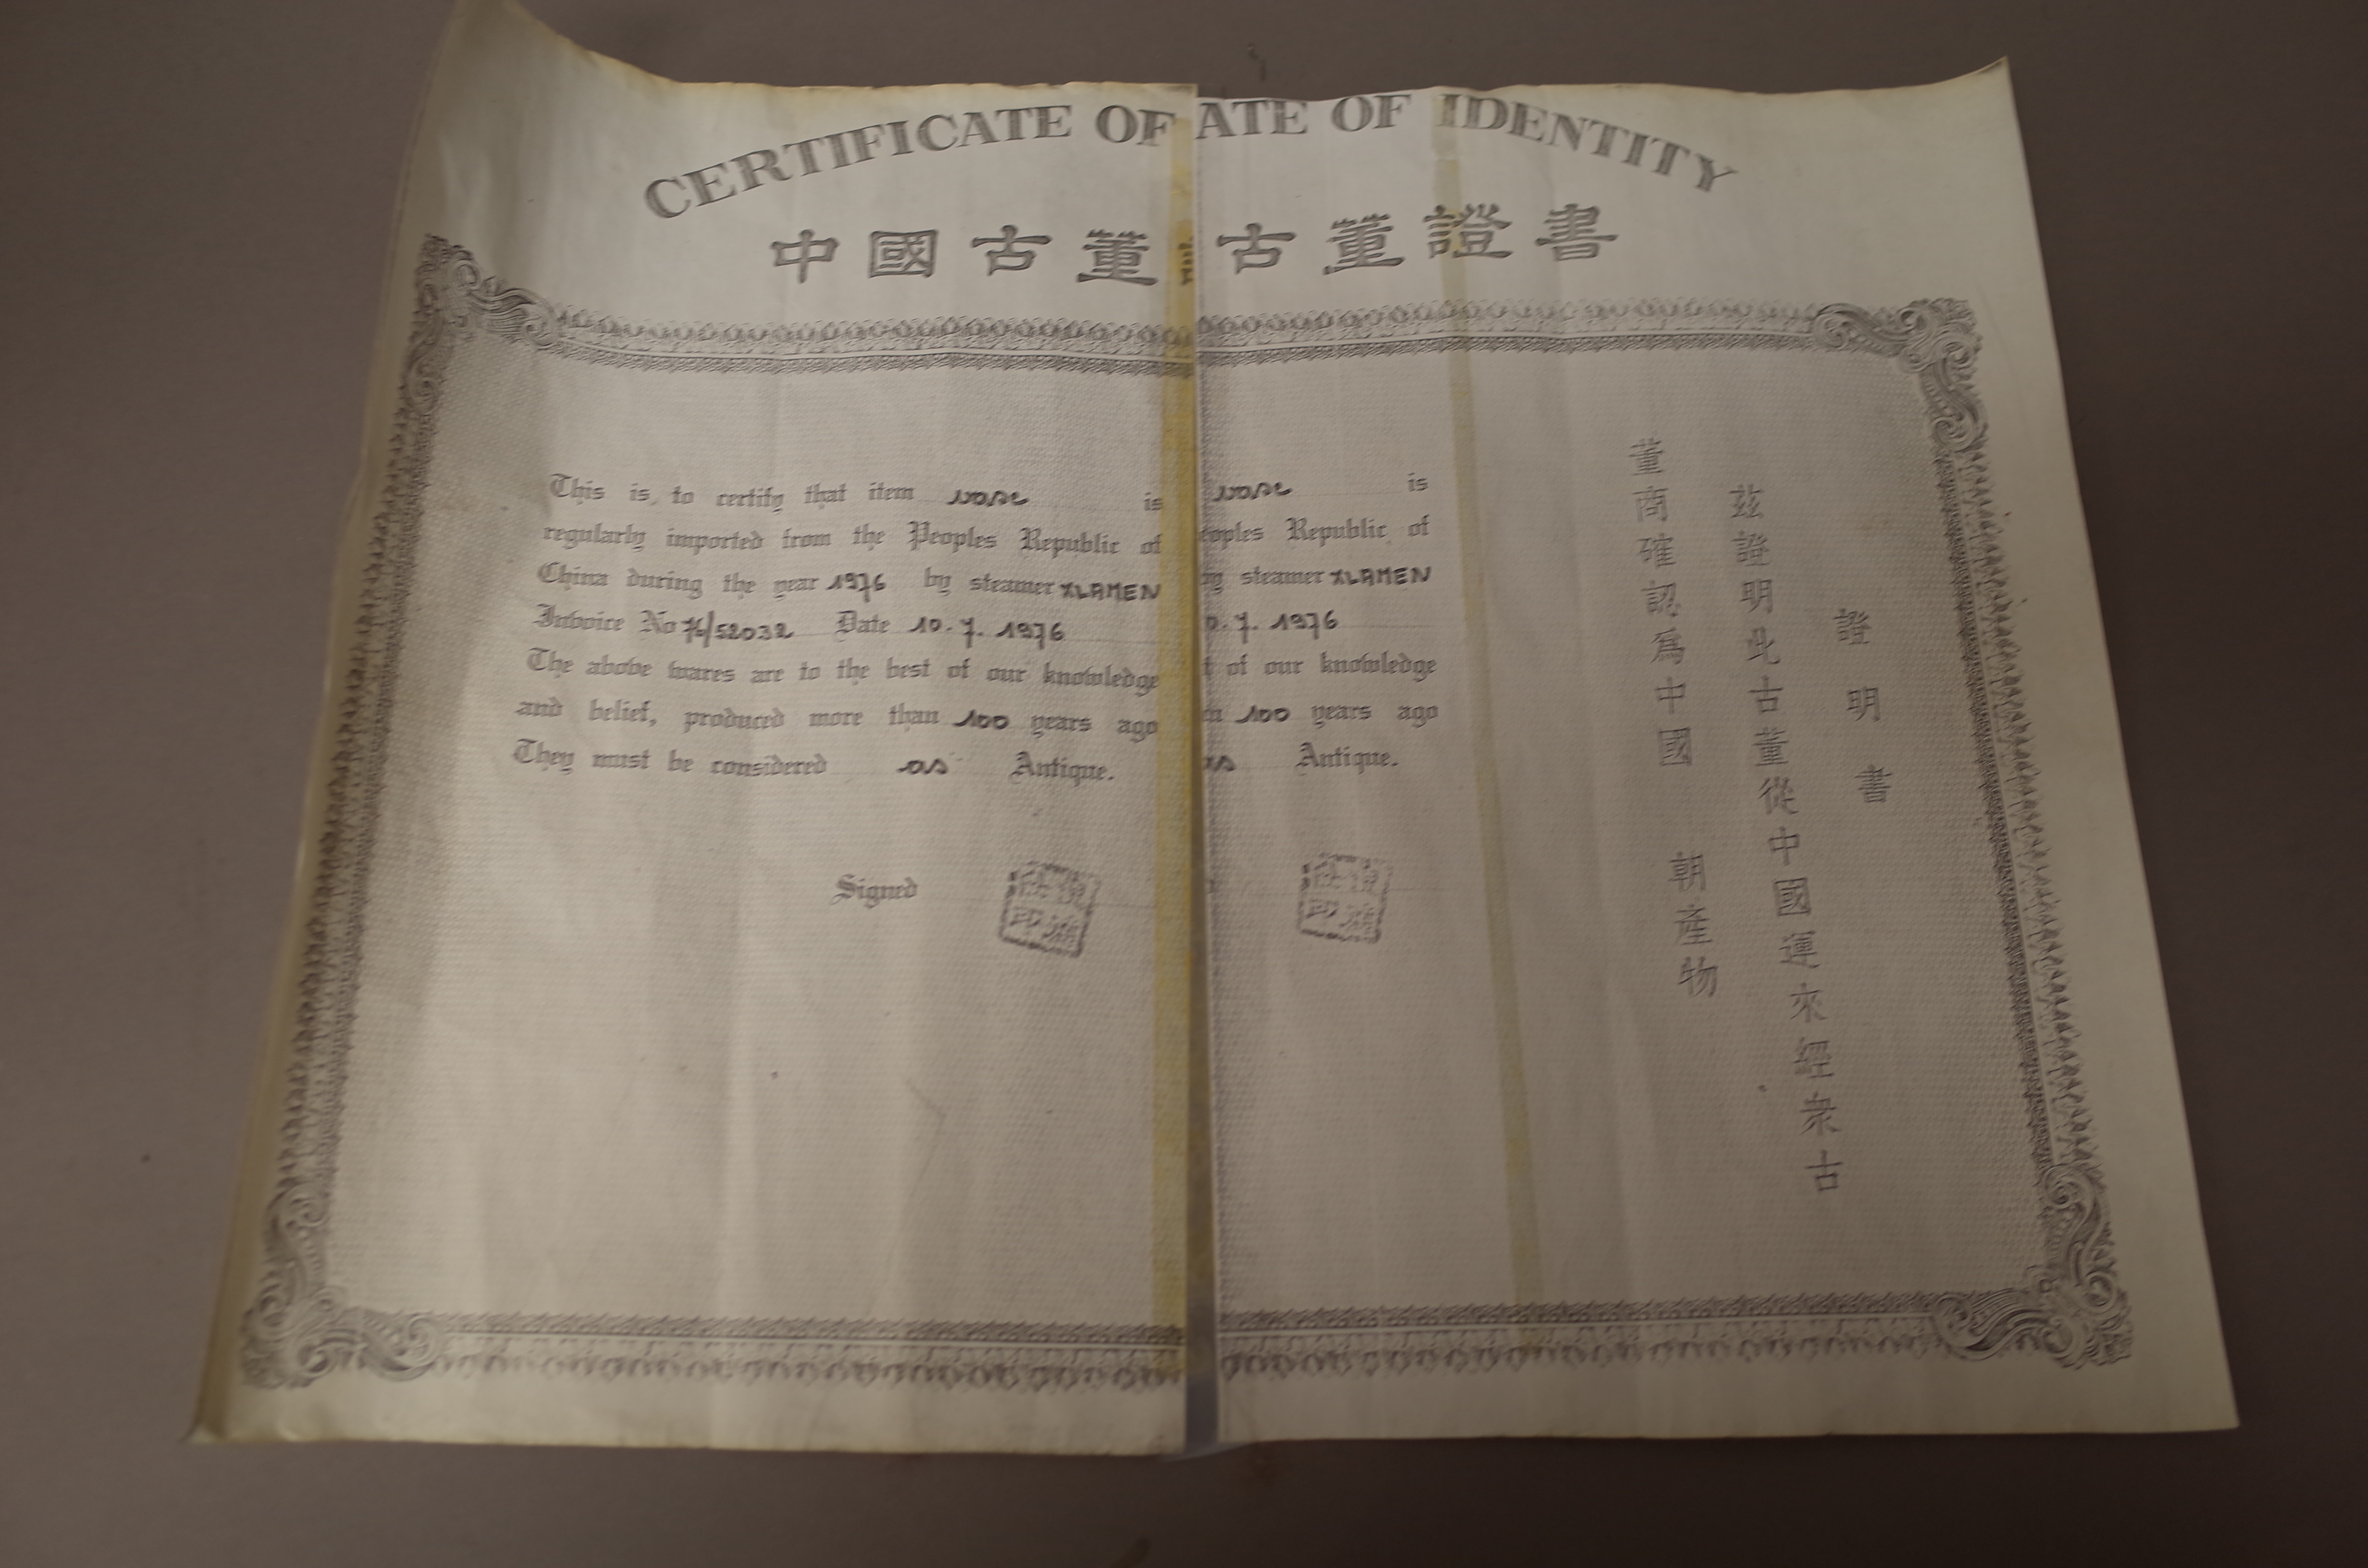 CERTIFICATE OF
中國古董
This is to certify that item vase is
regularly imported from the Peoples Republic of
China during the year 1976 by steamer XLAMEN
Invoice No 76/52032 Date 10.7.1976
The above wares are to the best of our knowledge
and belief, produced more than 100 years ago
They must be considered as Antique.
Signed
ATE OF IDENTITY
古董證書
vase is
eoples Republic of
by steamer XLAMEN
0.7.1976
t of our knowledge
n 100 years ago
as Antique.
證明書
茲證明此古董從中國運來經余古
董商確認爲中國 朝產物